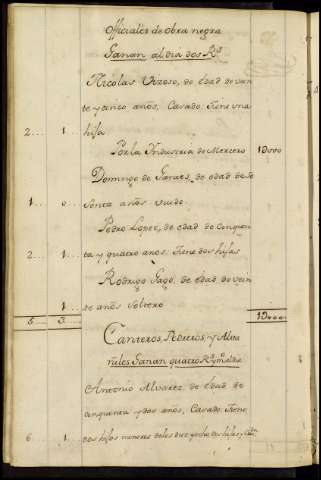 Officiales de obra negra
Ganan al dia dos R.s
Nicolas Vizoso, de edad de vein
te y cinco años, Casado. Tiene una
2... 1.. hija
Por la Yndustria de Mercero 1D000
Domingo de Garaes, de edad de se
1... 0.. senta años viudo.
Pedro Lopez, de edad de cinquen
2... 1.. ta y quatro anos. Tiene dos hijas
Rodrigo Gago, de edad de vein
1.. te años Soltero
5... 3.. 1D000..
Canteros, Pedreros, y Alva
ñiles Ganan quatro R.s
Antonio Alvarez de edad de
cinquenta y dos años, Casado. Tiene
6. 1.. dos hijos menores de los diez y ocho dos hijas